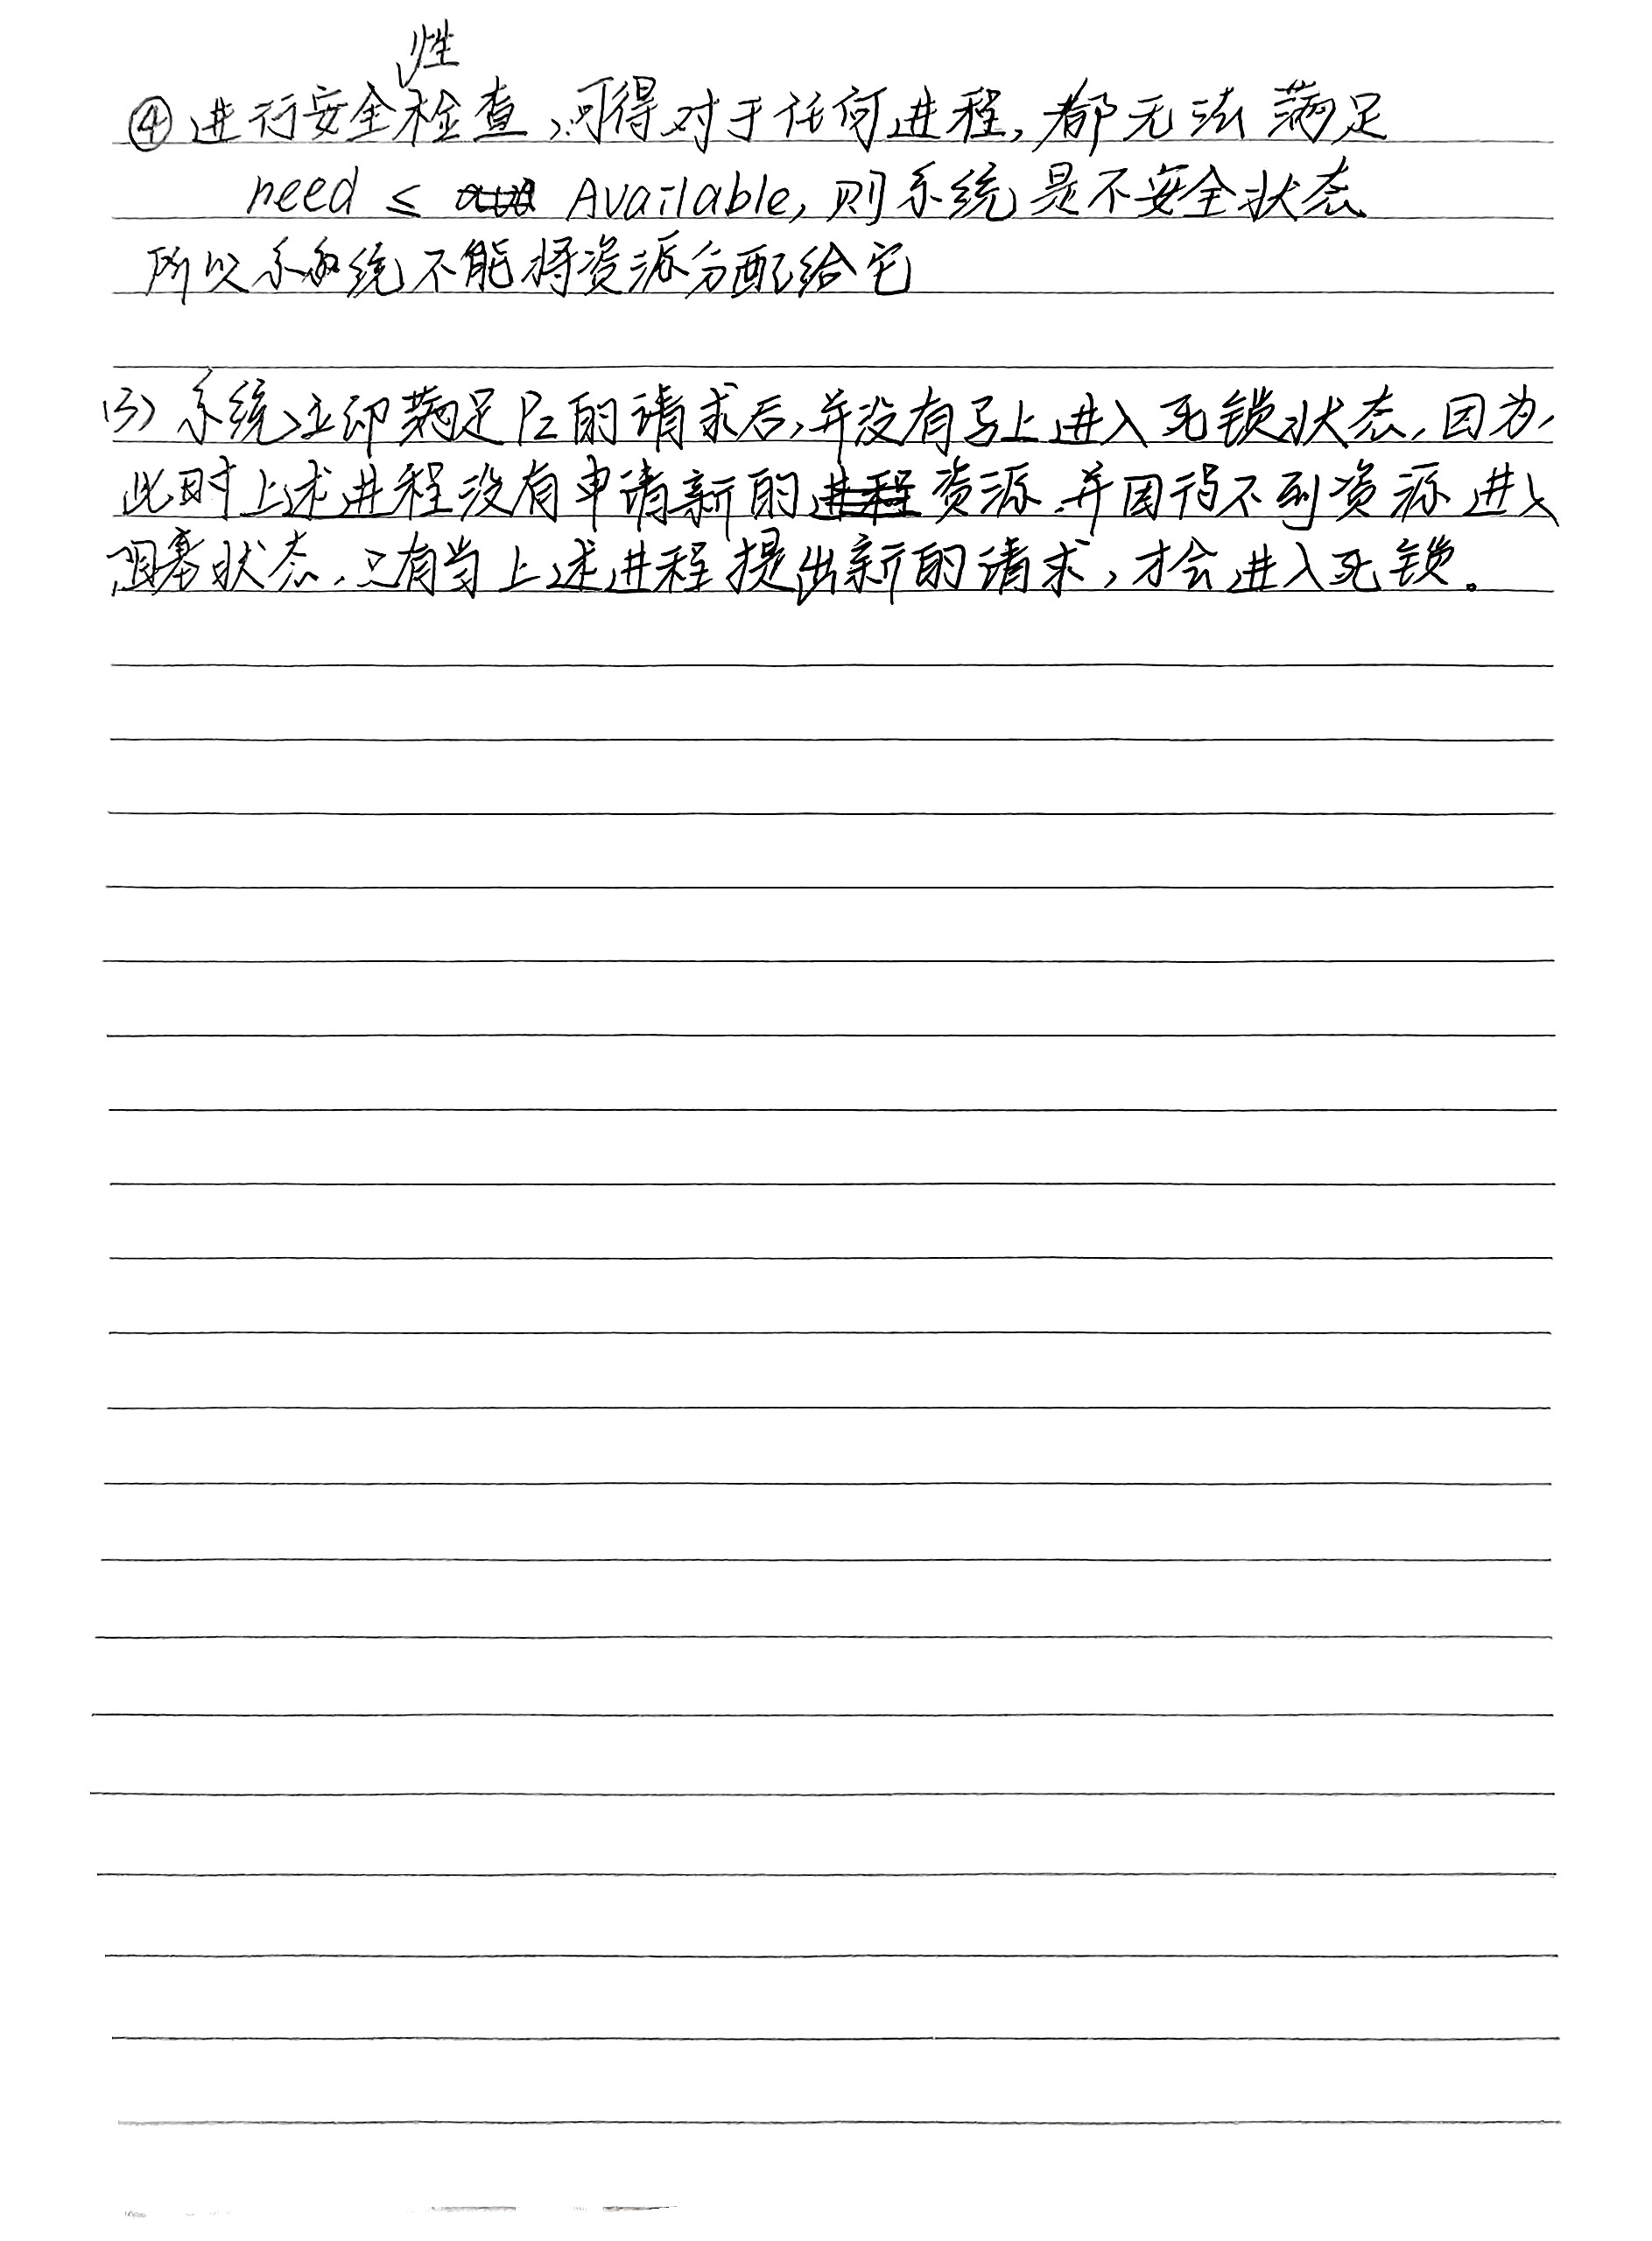 ④进行安全性检查,可得对于任何进程,都无法满足
need ≤ Available,则系统是不安全状态
所以系统不能将资源分配给它
(3) 系统立即满足P2的请求后,并没有马上进入死锁状态,因为,
此时上述进程没有申请新的资源,并因得不到资源进入
阻塞状态,只有当上述进程提出新的请求,才会进入死锁。